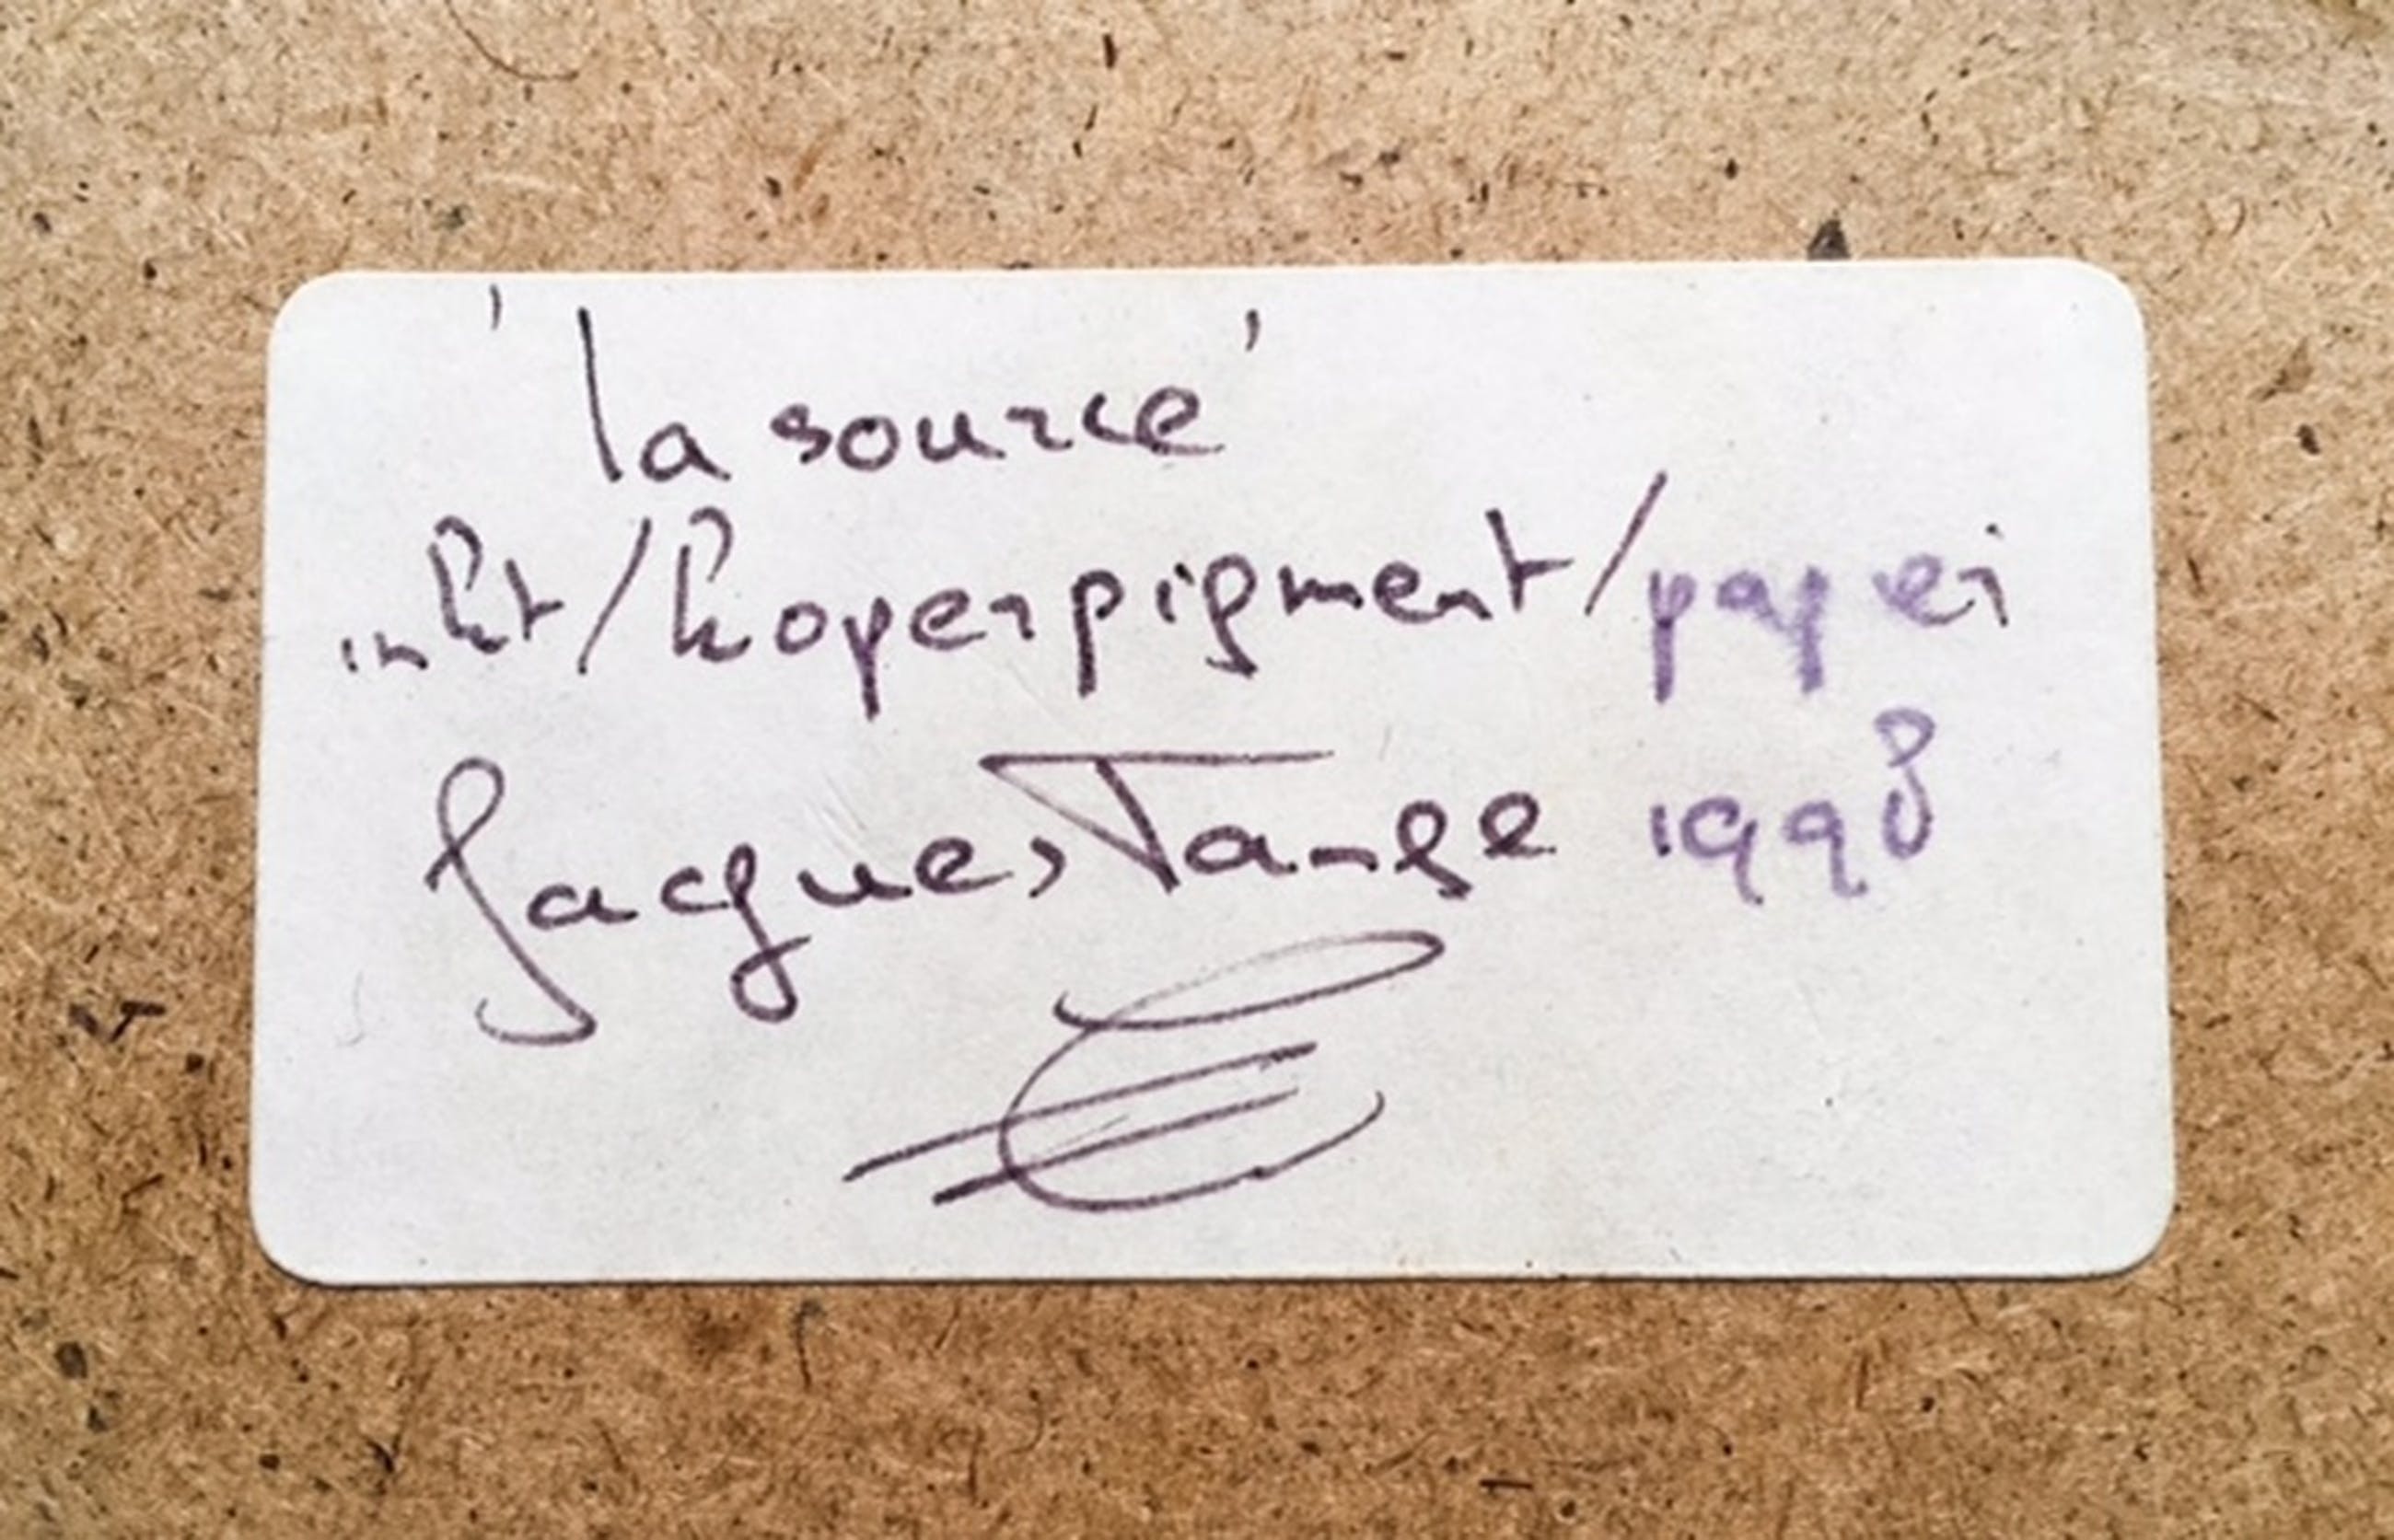 'la source'
inkt/koperpigment/papier
Jacques Tange 1998